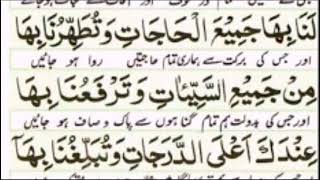 لَنَا بِهَا جَمِيْعَ الْحَاجَاتِ وَتُطَهِّرُنَا بِهَا
اور جس کی برکت سے ہماری تمام حاجتیں روا ہو جائیں
مِنْ جَمِيْعِ السَّيِّاٰتِ وَتَرْفَعُنَا بِهَا
اور جس کی بدولت ہم تمام گناہوں سے پاک و صاف ہو جائیں
عِنْدَكَ اَعْلَى الدَّرَجَاتِ وَتُبَلِّغُنَا بِهَا